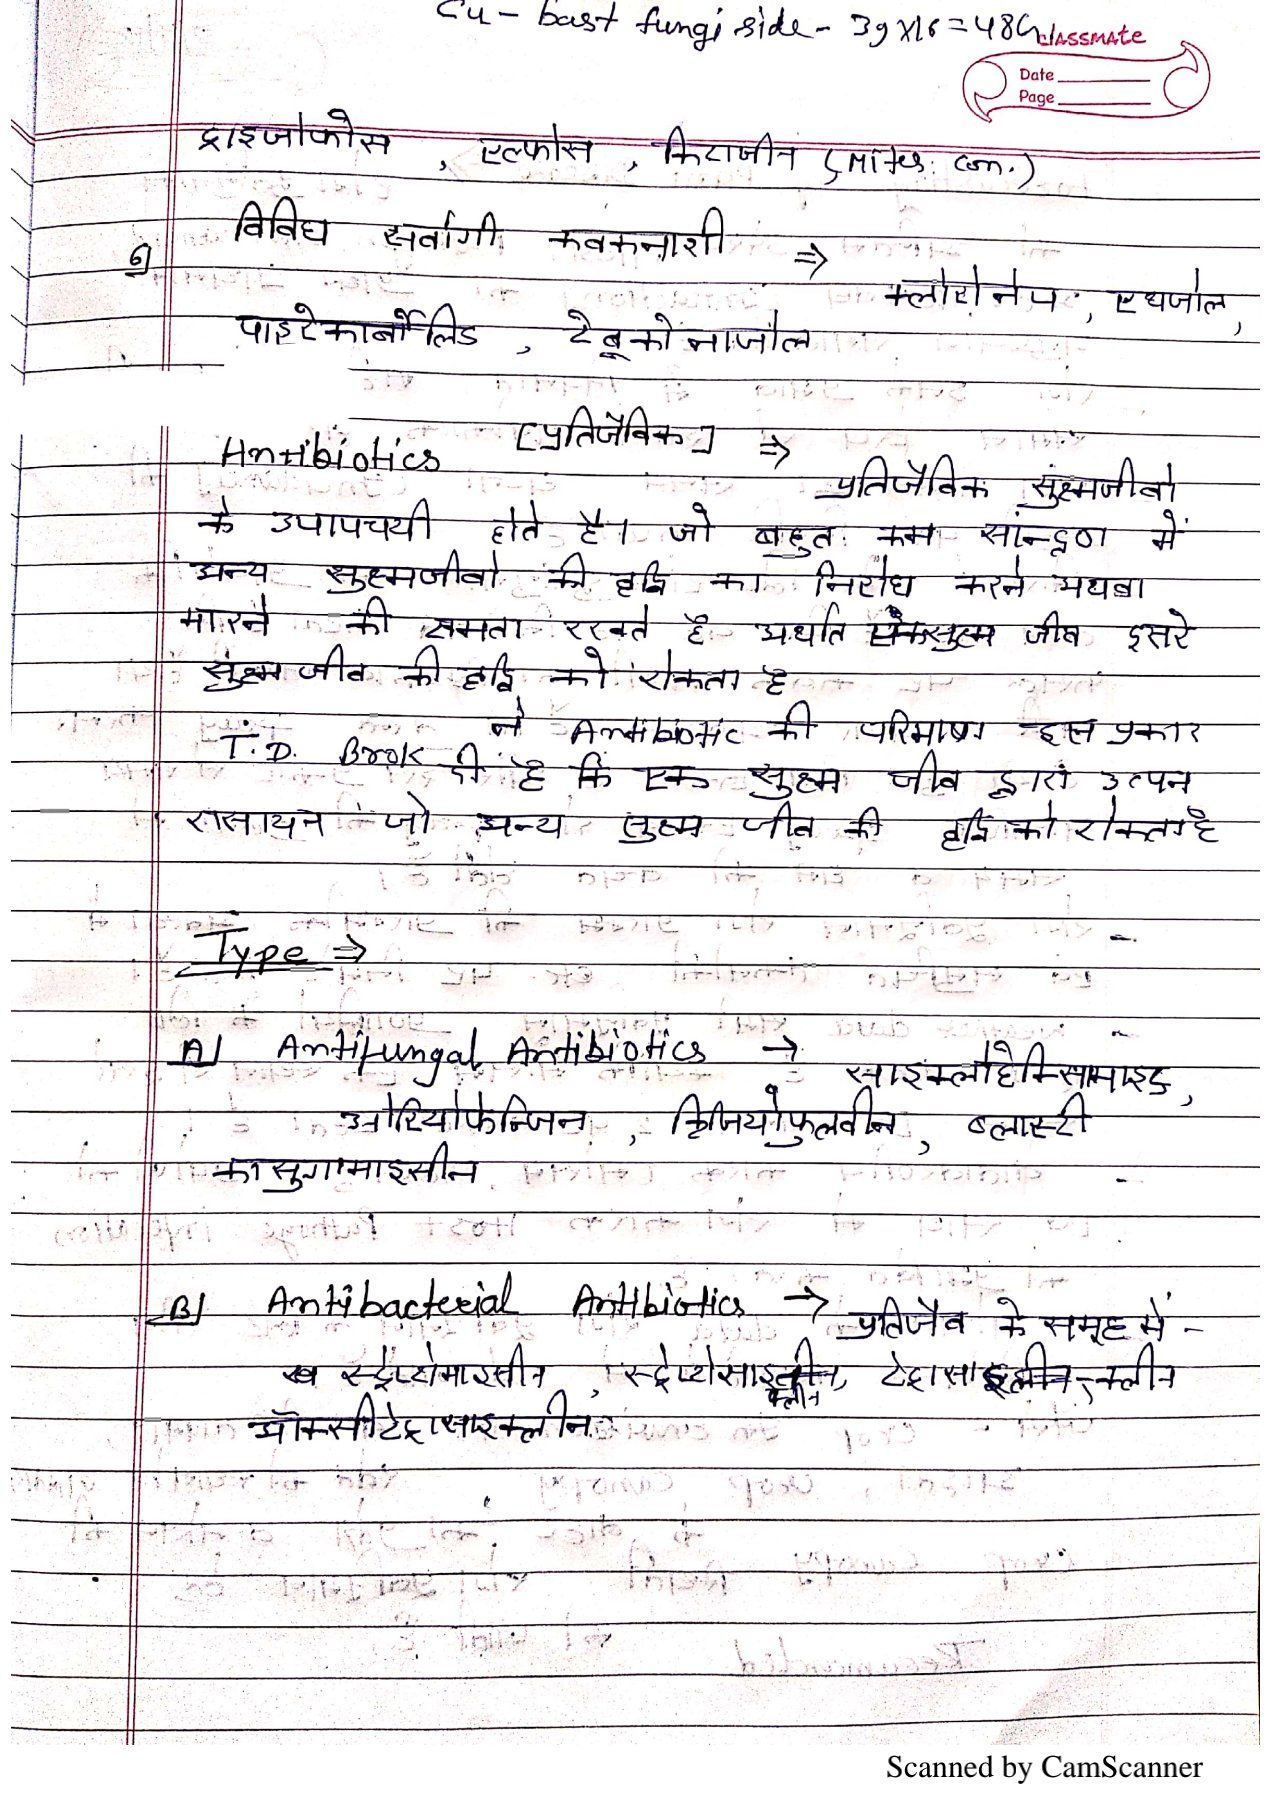 Cu - bast fungi side - 3g x 16 = 48G
classmate
Date
Page
ट्राइजोफोस , एल्फोस , किटाजीन (Mites con.)
6) विविध सर्वागी कवकनाशी ⇒
क्लोरोनेप , एथजोल,
पाइरेकार्बोलिड , टेबूकोनाजोल
Antibiotics [प्रतिजैविक] ⇒
प्रतिजैविक सुक्ष्मजीवो
के उपापचयी होते है। जो बहुत कम सांन्द्रण में
अन्य सुक्ष्मजीवो की वृद्वि का निरोध करने अथवा
मारने की क्षमता रखते है अर्थात एकसुक्ष्म जीव दुसरे
सुक्ष्म जीव की वृद्वि को रोकता है
T.D. Brok ने Antibiotic की परिभाषा इस प्रकार
दी है कि एक सुक्ष्म जीव द्वारा उत्पन
रासायन जो अन्य सुक्ष्म जीव की वृद्वि को रोकता है
Type ⇒
A) Antifungal Antibiotics →
साइक्लोहेक्सिामाइड,
ओरियोफेन्जिन , ग्रिजियोफुलवीन, ब्लास्टी
कासुगामाइसीन
B) Antibacterial Antibiotics → प्रतिजैव के समूह में -
स्ट्रेप्टोमाइसीन , स्ट्रेप्टोसाइक्लीन, टेट्रासाइक्लीन
ऑक्सीटेट्रासाइक्लीन
Scanned by CamScanner